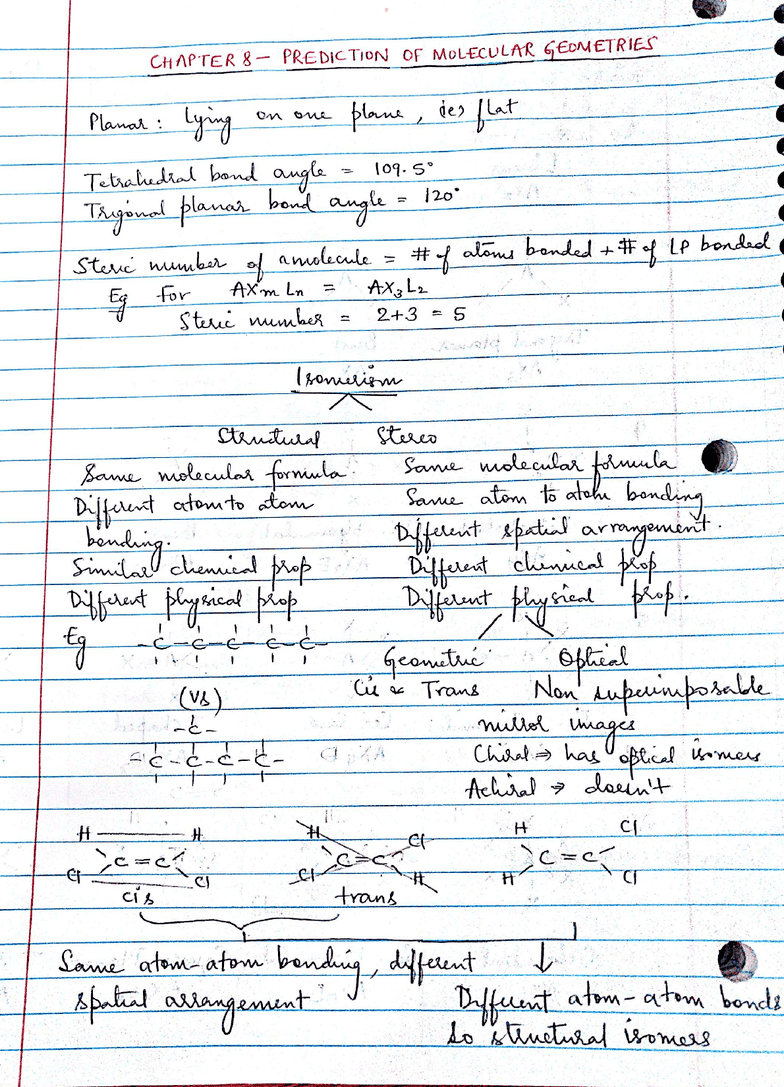 CHAPTER 8 - PREDICTION OF MOLECULAR GEOMETRIES
Planar : Lying on one plane, ie, flat
Tetrahedral bond angle = 109.5°
Trigonal planar bond angle = 120°
Steric number of a molecule = # of atoms bonded + # of LP bonded
Eg For AXmLn = AX3L2
Steric number = 2+3 = 5
Isomerism
Structural Stereo
Same molecular formula Same molecular formula
Different atom to atom Same atom to atom bonding
bonding. Different spatial arrangement.
Similar chemical prop Different chemical prop
Different physical prop Different physical prop.
Eg -C-C-C-C-C-
Geometric Optical
Cis & Trans Non superimposable
(VS) mirror images
-C-
-C-C-C-C- Chiral ⇒ has optical isomers
Achiral ⇒ doesn't
H H H Cl H Cl
C=C C=C C=C
Cl Cl Cl H H Cl
cis trans
Same atom-atom bonding, different
spatial arrangement Different atom-atom bonds
So structural isomers